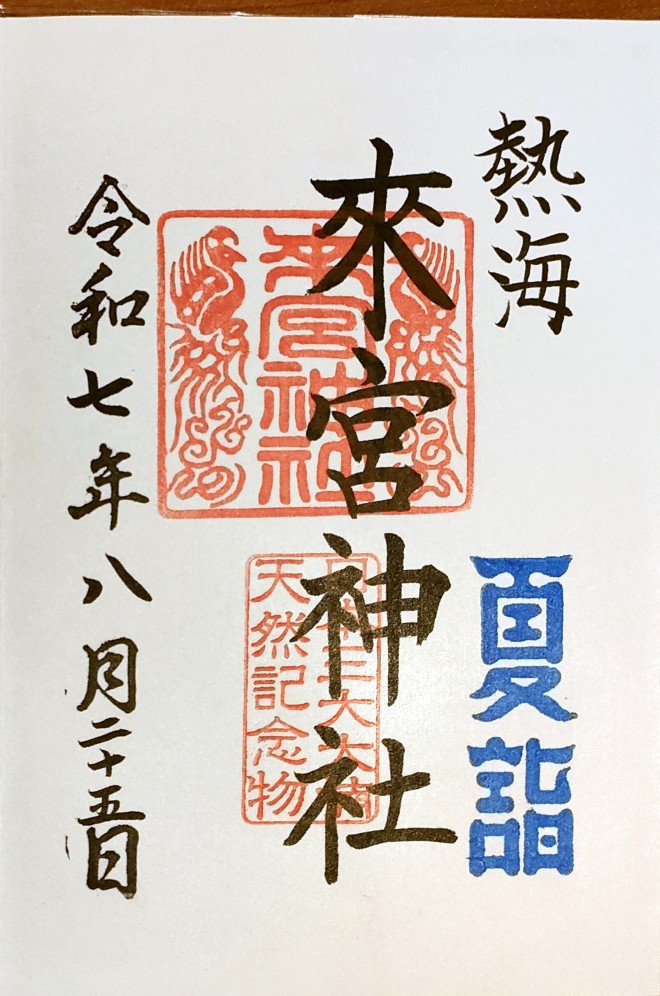 熱海
夏詣
來宮神社
來宮神社
日本三大大楠
天然記念物
令和七年八月二十五日